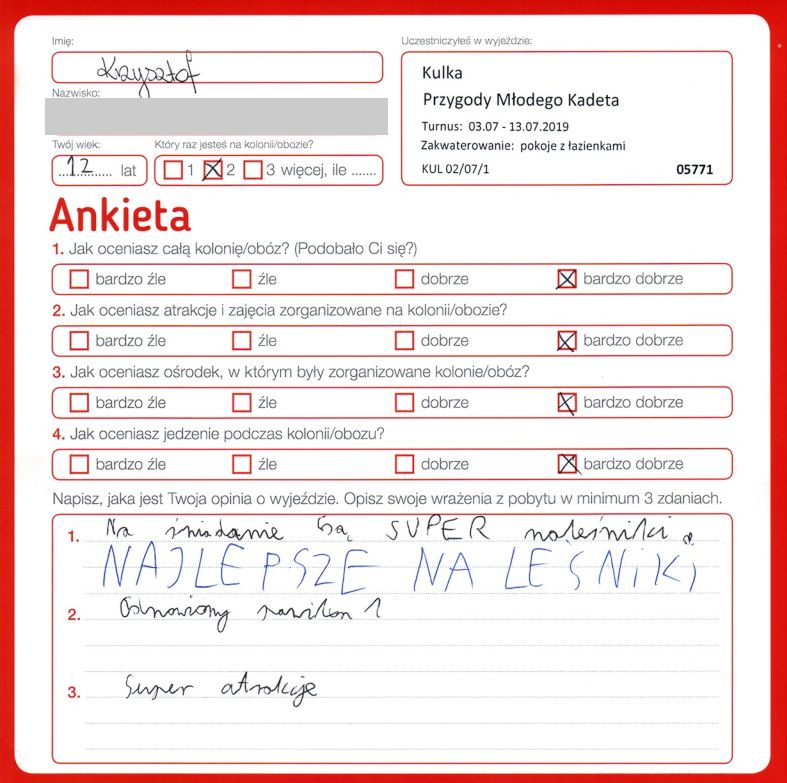 Imię:
Krzysztof
Nazwisko:
Twój wiek:
12 lat
Który raz jesteś na kolonii/obozie?
1 2 3 więcej, ile .......
Uczestniczyłeś w wyjeździe:
Kulka
Przygody Młodego Kadeta
Turnus: 03.07 - 13.07.2019
Zakwaterowanie: pokoje z łazienkami
KUL 02/07/1 05771
Ankieta
1. Jak oceniasz całą kolonię/obóz? (Podobało Ci się?)
bardzo źle źle dobrze bardzo dobrze
2. Jak oceniasz atrakcje i zajęcia zorganizowane na kolonii/obozie?
bardzo źle źle dobrze bardzo dobrze
3. Jak oceniasz ośrodek, w którym były zorganizowane kolonie/obóz?
bardzo źle źle dobrze bardzo dobrze
4. Jak oceniasz jedzenie podczas kolonii/obozu?
bardzo źle źle dobrze bardzo dobrze
Napisz, jaka jest Twoja opinia o wyjeździe. Opisz swoje wrażenia z pobytu w minimum 3 zdaniach.
1. Na śniadanie są SUPER naleśniki.
NAJLEPSZE NALEŚNIKI
2. Odnowiony pawilon 1
3. Super atrakcje